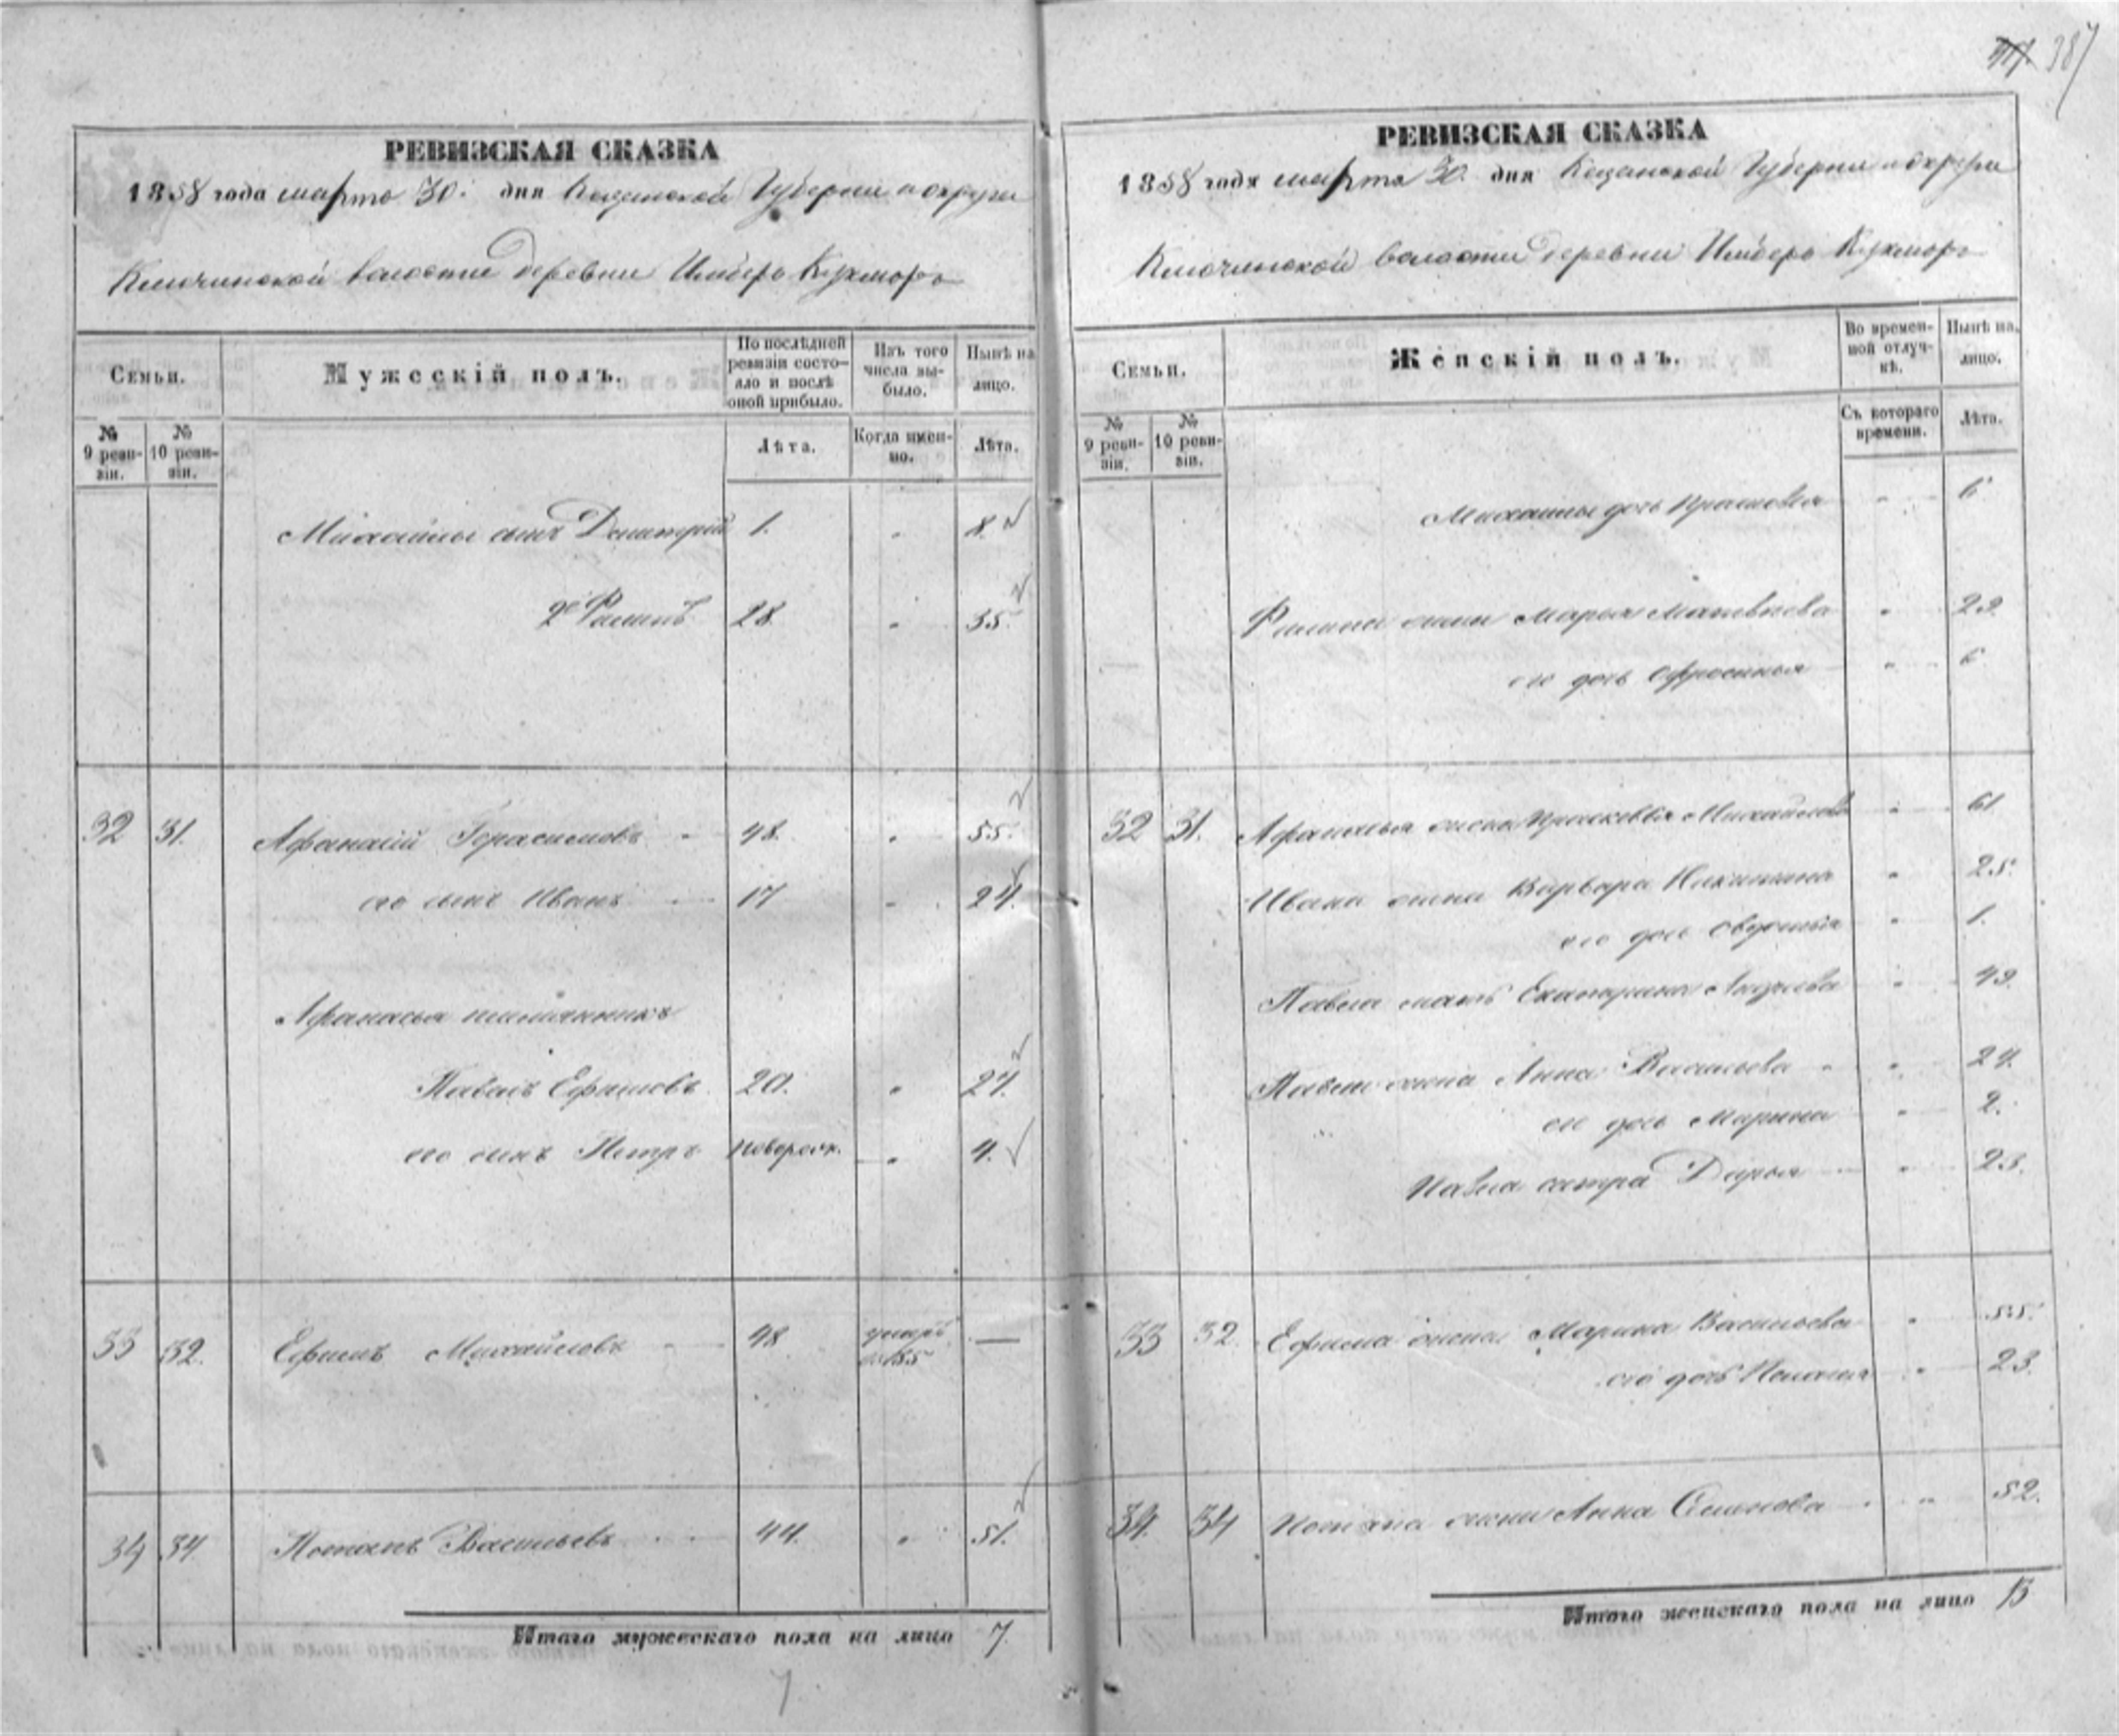 387
РЕВИЗСКАЯ СКАЗКА
1858 года марта 30. дня Казанской Губернии и округи
Ключинской волости деревни Имберь Кукморъ
Семьи.
Мужескій полъ.
По послѣдней ревизіи состояло и послѣ оной прибыло.
Изъ того числа выбыло.
Нынѣ на лицо.
№ 9 ревизіи.
№ 10 ревизіи.
Лѣта.
Когда именно.
Лѣта.
Михайлы сынъ Дмитрій 1. " 8.
2й Филипъ 28 " 35.
32 31. Афанасій Герасимовъ 48. " 55.
его сынъ Иванъ 17 " 24.
Афанасья племянникъ
Павелъ Ефимовъ 20. " 27.
его сынъ Петръ новорож. " 4.
33 32. Ефимъ Михайловъ 48 умеръ 1855 —
34 34 Потапъ Васильевъ 44. " 51.
Итого мужескаго пола на лицо 7.
7
РЕВИЗСКАЯ СКАЗКА
1858 года марта 30. дня Казанской Губернии и округи
Ключинской волости деревни Имберь Кукморъ
Семьи.
Женскій полъ.
Во временной отлучкѣ.
Нынѣ на лицо.
№ 9 ревизіи.
№ 10 ревизіи.
Съ котораго времени.
Лѣта.
Михайлы дочь " 6
Филипа жена Марья Матвѣева " 29.
его дочь Офросинья " 6
32 31. Афанасья жена Прасковья Михайлова " 61
Ивана жена Варвара Никитина " 25.
его дочь Овдотья " 1.
Павла мать Екатерина Андреева " 49.
Павла жена Анна Васильева " 27.
ее дочь Марина " 2.
Павла сестра Дарья " 23.
33 32 Ефима жена Марина Васильева " 55.
его дочь " 23.
34. 34 Потапа жена Анна Семенова " 52.
Итого женскаго пола на лицо 13